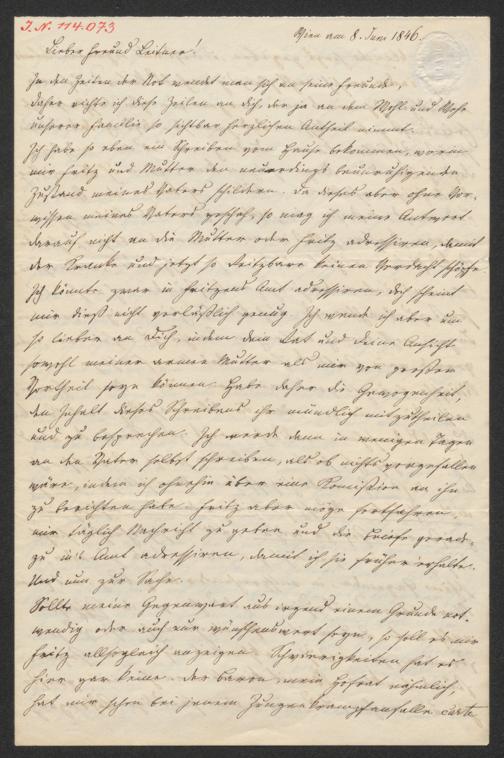 I. N. 114.073
Wien am 8. Juni 1846.
Lieber Freund Leitner!
In den Zeiten der Not wendet man sich an seine Freunde,
daher richte ich diese Zeilen an dich, der ja an dem Wohl und Wehe
unserer Familie so sichtbar herzlichen Antheil nimmt.
Ich habe so eben ein Schreiben vom Hause bekommen, worin
mir Fritz und Mutter den neuerdings beunruhigenden
Zustand meines Vaters schildern. Da dieses aber ohne Vor-
wissen meines Vaters geschah, so mag ich meine Antwort
darauf nicht an die Mutter oder Fritz adressiren, damit
der Kranke und jetzt so Reitzbare keinen Verdacht schöpfe
Ich könnte zwar in Fritzens Amt adressiren, doch scheint
mir dieß nicht verläßlich genug. Ich wende ich aber um
so lieber an Dich, indem dein Rat und deine Ansicht
sowohl meiner armen Mutter als mir von großem
Vortheil seyn können. Habe daher die Gewogenheit,
den Inhalt dieses Schreibens ihr mündlich mitzutheilen
und zu besprechen. Ich werde dann in wenigen Tagen
an den Vater selbst schreiben, als ob nichts vorgefallen
wäre, indem ich ohnehin über eine Komission an ihn
zu berichten habe. Fritz aber möge fortfahren,
mir täglich Nachricht zu geben und die Briefe gerade-
zu in's Amt adressiren, damit ich sie früher erhalte.
Und nun zur Sache.
Sollte meine Gegenwart aus irgend einem Grunde not-
wendig oder auch nur wünschenswert seyn, so soll es mir
Fritz allsogleich anzeigen. Schwierigkeiten hat es
hier gar keine. Der Baron, mein Hofrat nähmlich,
hat mir schon bei jenem Zungenkrampfanfalle carte